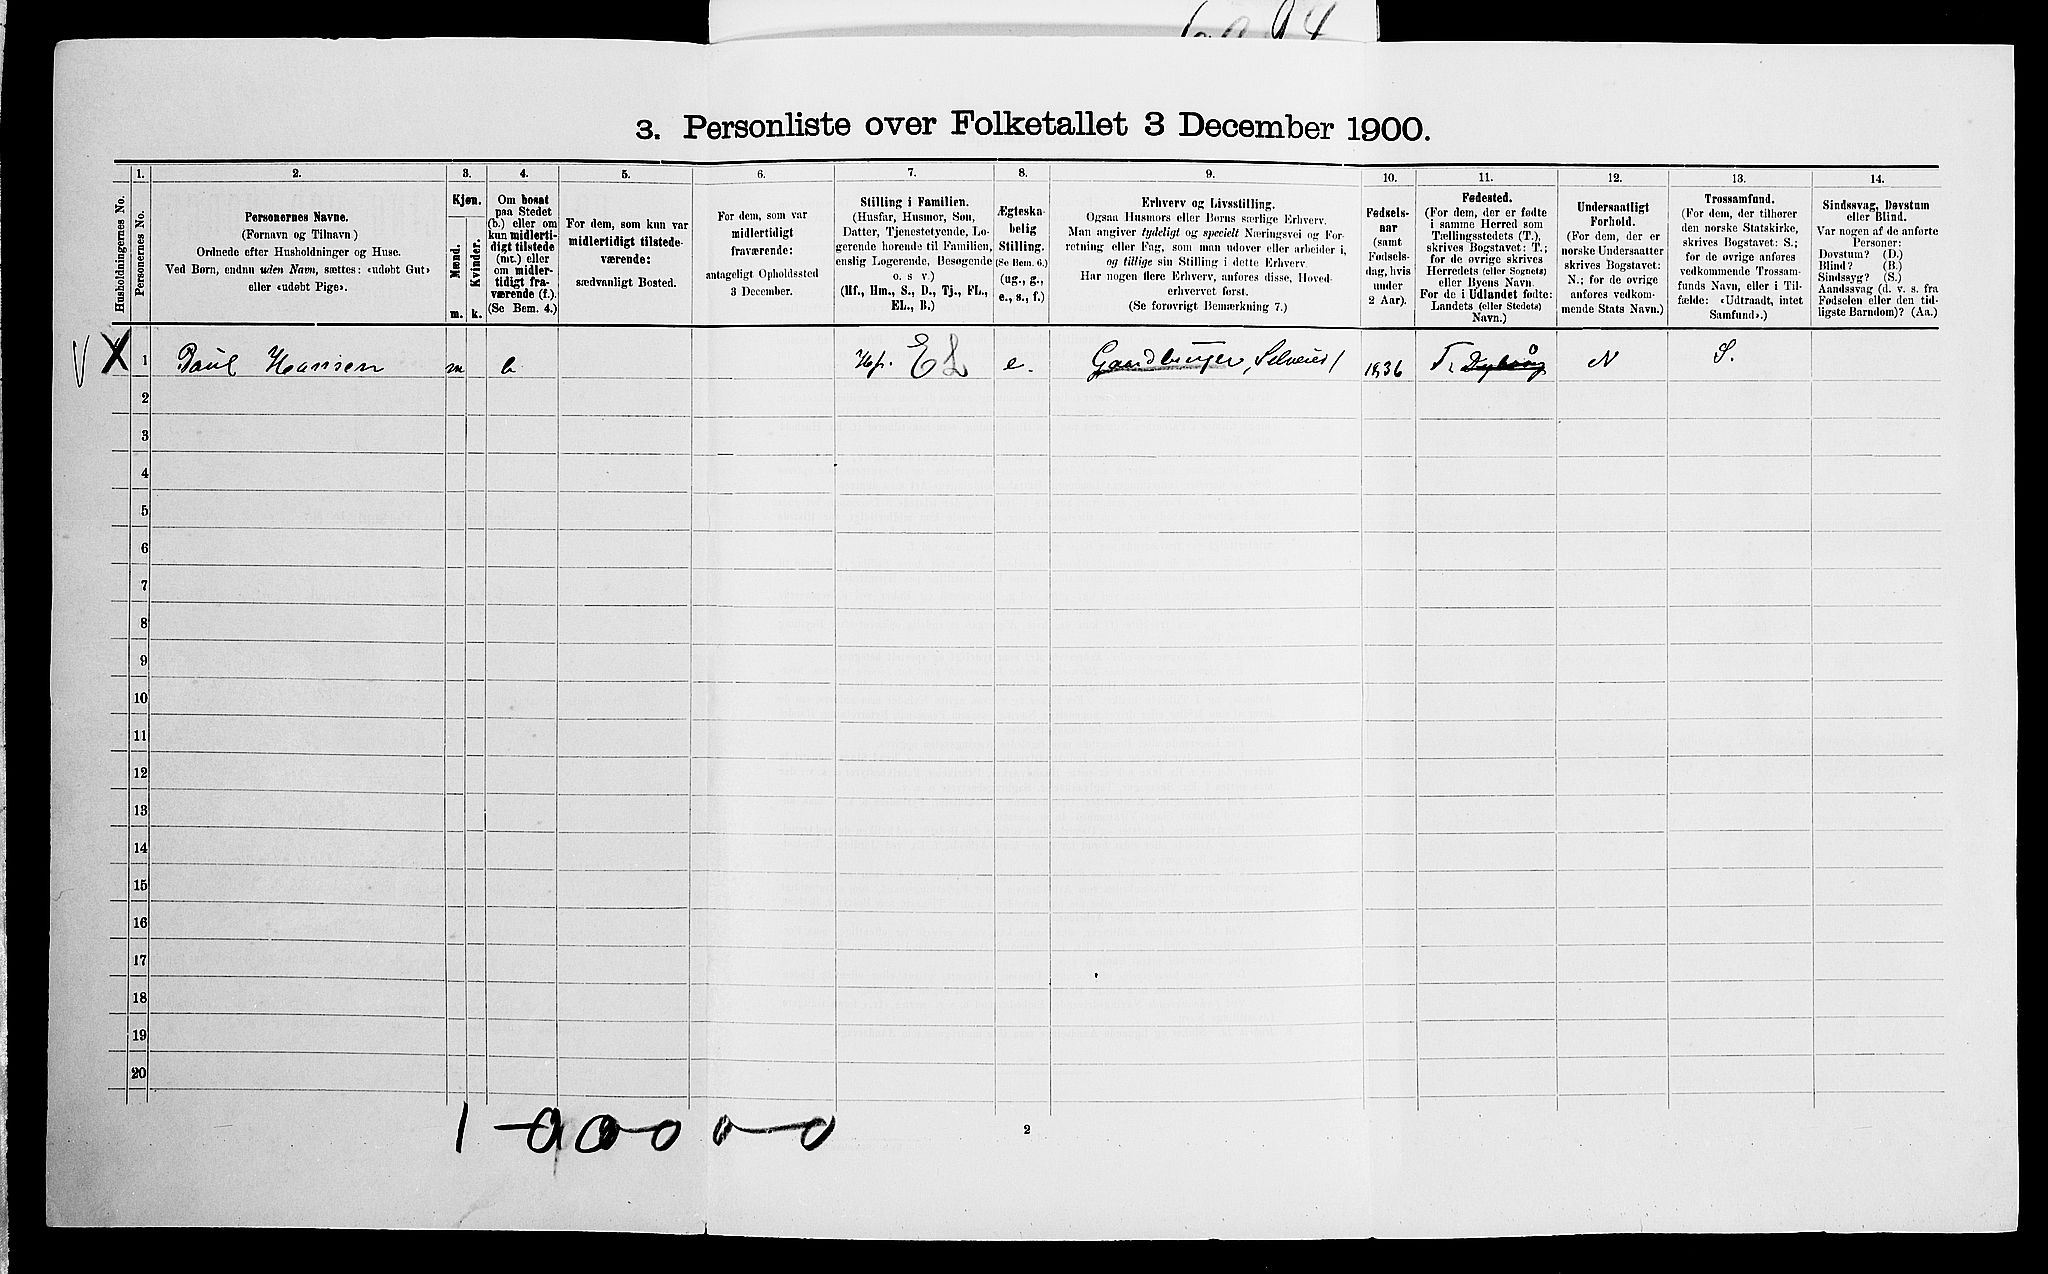 3. Personliste over Folketallet 3 December 1900.
Husholdningernes No.
1.
Personernes No.
2.
Personernes Navne.
(Fornavn og Tilnavn)
Ordnede efter Husholdninger og Huse.
Ved Børn, endnu uden Navn, sættes: «udøbt Gut»
eller «udøbt Pige».
3.
Kjøn.
Mænd.
Kvinder.
m. k.
4.
Om bosat
paa Stedet
(b.) eller om
kun midlerti-
digt tilstede
(mt.) eller
om midler-
tidigt fra-
værende (f.).
(Se Bem. 4.)
5.
For dem, som kun var
midlertidigt tilstede-
værende:
sædvanligt Bosted.
6.
For dem, som var
midlertidigt
fraværende:
antageligt Opholdssted
3 December.
7.
Stilling i Familien.
(Husfar, Husmor, Søn,
Datter, Tjenestetyende, Lo-
gerende hørende til Familien,
enslig Logerende, Besøgende
o. s v.)
(Hf., Hm., S., D., Tj., FL.,
EL., B.)
8.
Ægteska-
belig
Stilling.
(Se Bem. 6.)
(ug., g.,
e., s., f.)
9.
Erhverv og Livsstilling.
Ogsaa Husmors eller Børns særlige Erhverv.
Man angiver tydeligt og specielt Næringsvei og For-
retning eller Fag, som man udøver eller arbeider i,
og tillige sin Stilling i dette Erhverv.
Har nogen flere Erhverv, anføres disse, Hoved-
erhvervet først.
(Se forøvrigt Bemærkning 7.)
10.
Fødsels-
aar
(samt
Fødsels-
dag, hvis
under
2 Aar).
11.
Fødested.
(For dem, der er fødte
i samme Herred som
Tællingsstedets (T.),
skrives Bogstavet: T.;
for de øvrige skrives
Herredets (eller Sognets)
eller Byens Navn.
For de i Udlandet fødte:
Landets (eller Stedets)
Navn.)
12.
Undersaatligt
Forhold.
(For dem, der er
norske Undersaatter
skrives Bogstavet:
N.; for de øvrige
anføres vedkom-
mende Stats Navn.)
13.
Trossamfund.
(For dem, der tilhører
den norske Statskirke,
skrives Bogstavet: S.;
for de øvrige anføres
vedkommende Trossam-
funds Navn, eller i Til-
fælde: «Udtraadt, intet
Samfund».)
14.
Sindssvag, Døvstum
eller Blind.
Var nogen af de anførte
Personer:
Døvstum? (D.)
Blind? (B.)
Sindssyg? (S.)
Aandssvag (d. v. s. fra
Fødselen eller den tid-
ligste Barndom)? (Aa.)
1 Paul Hansen m b Hf. EL e. Gaardbruger, Selveier 1836 T. Dybvåg N S.
2
3
4
5
6
7
8
9
10
11
12
13
14
15
16
17
18
19
20
2